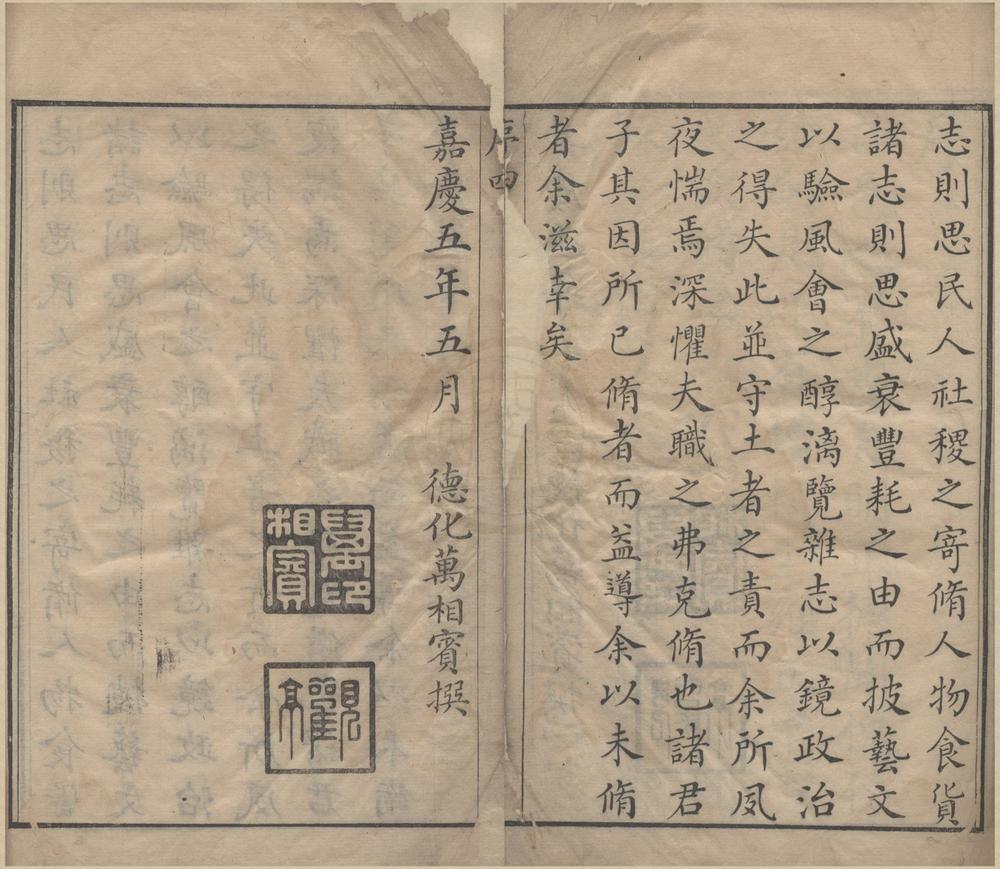 志則思民人社稷之寄脩人物食貨
諸志則思盛衰豐耗之由而披藝文
以驗風會之醇漓覽雜志以鏡政治
之得失此並守土者之責而余所夙
夜惴焉深懼夫職之弗克脩也諸君
子其因所已脩者而益導余以未脩
者余滋幸矣
序四
嘉慶五年五月 德化萬相賓撰
萬印相賓
觀亭